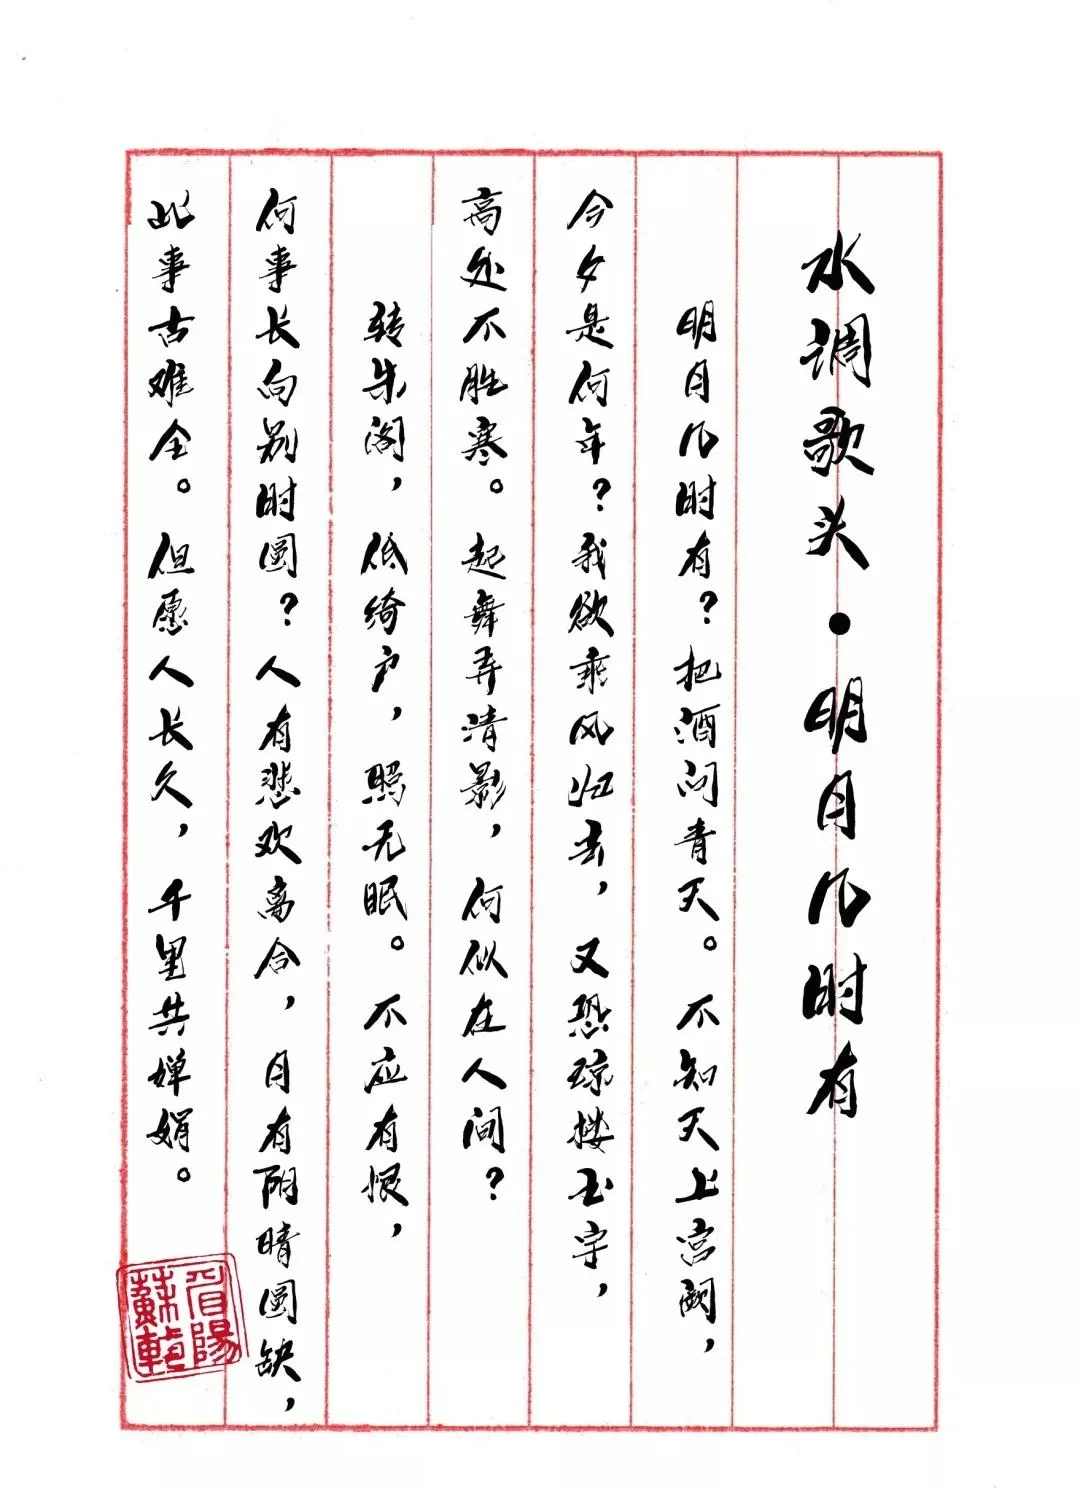 水调歌头·明月几时有
明月几时有？把酒问青天。不知天上宫阙，
今夕是何年？我欲乘风归去，又恐琼楼玉宇，
高处不胜寒。起舞弄清影，何似在人间？
转朱阁，低绮户，照无眠。不应有恨，
何事长向别时圆？人有悲欢离合，月有阴晴圆缺，
此事古难全。但愿人长久，千里共婵娟。
眉陽
蘇軾